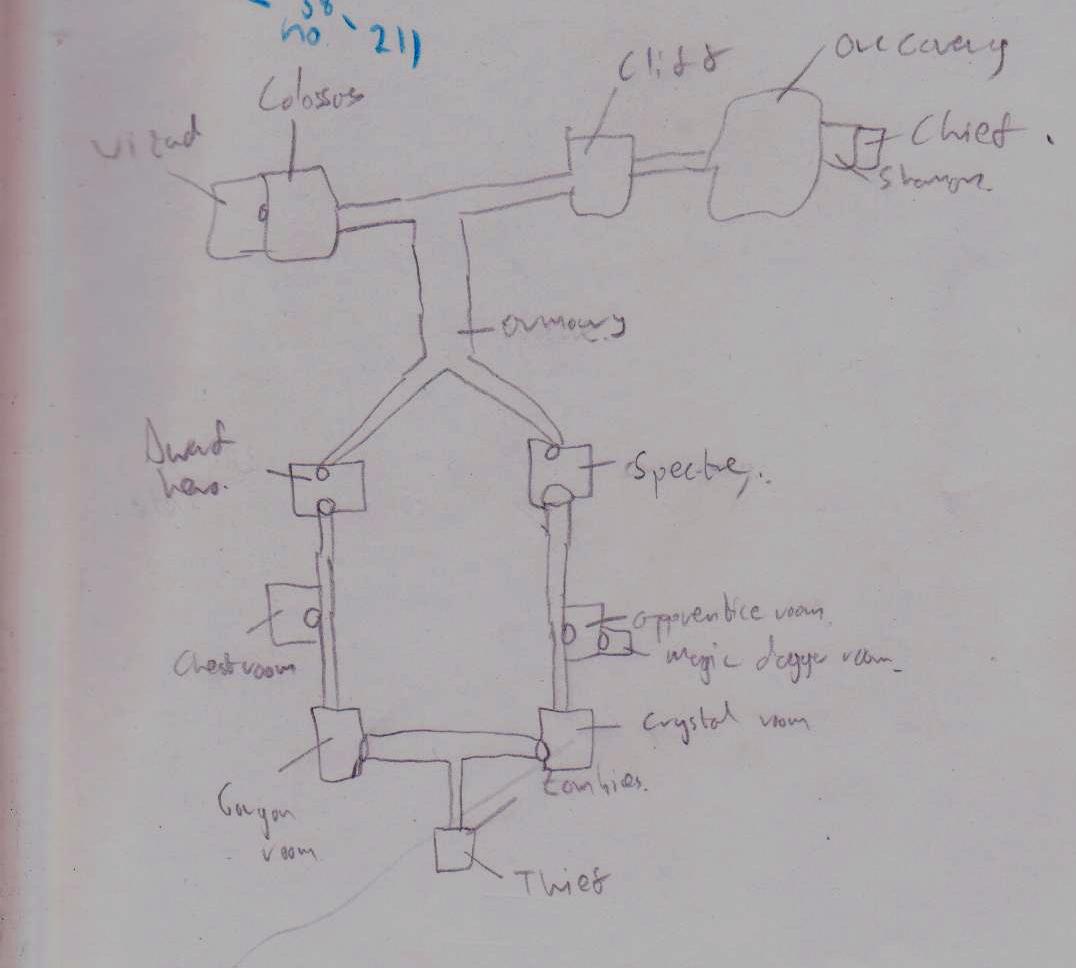 no 211
Colossus
Cliff
Orc cavery
Wizad
Chief.
Shaman.
armoury
Dwarf
hero.
Spectre,.
apprentice room,
magic dagger room
Chest room
Crystal room
Zombies.
Gorgon
room
Thief